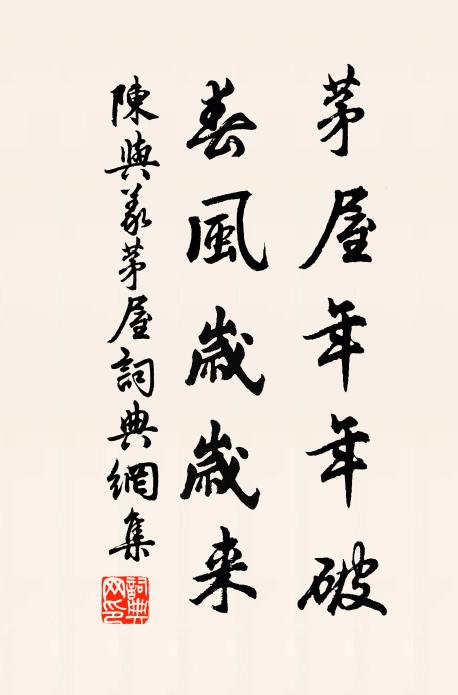 茅屋年年破
春風歲歲来
陳與義茅屋詞典網集
詞典网印